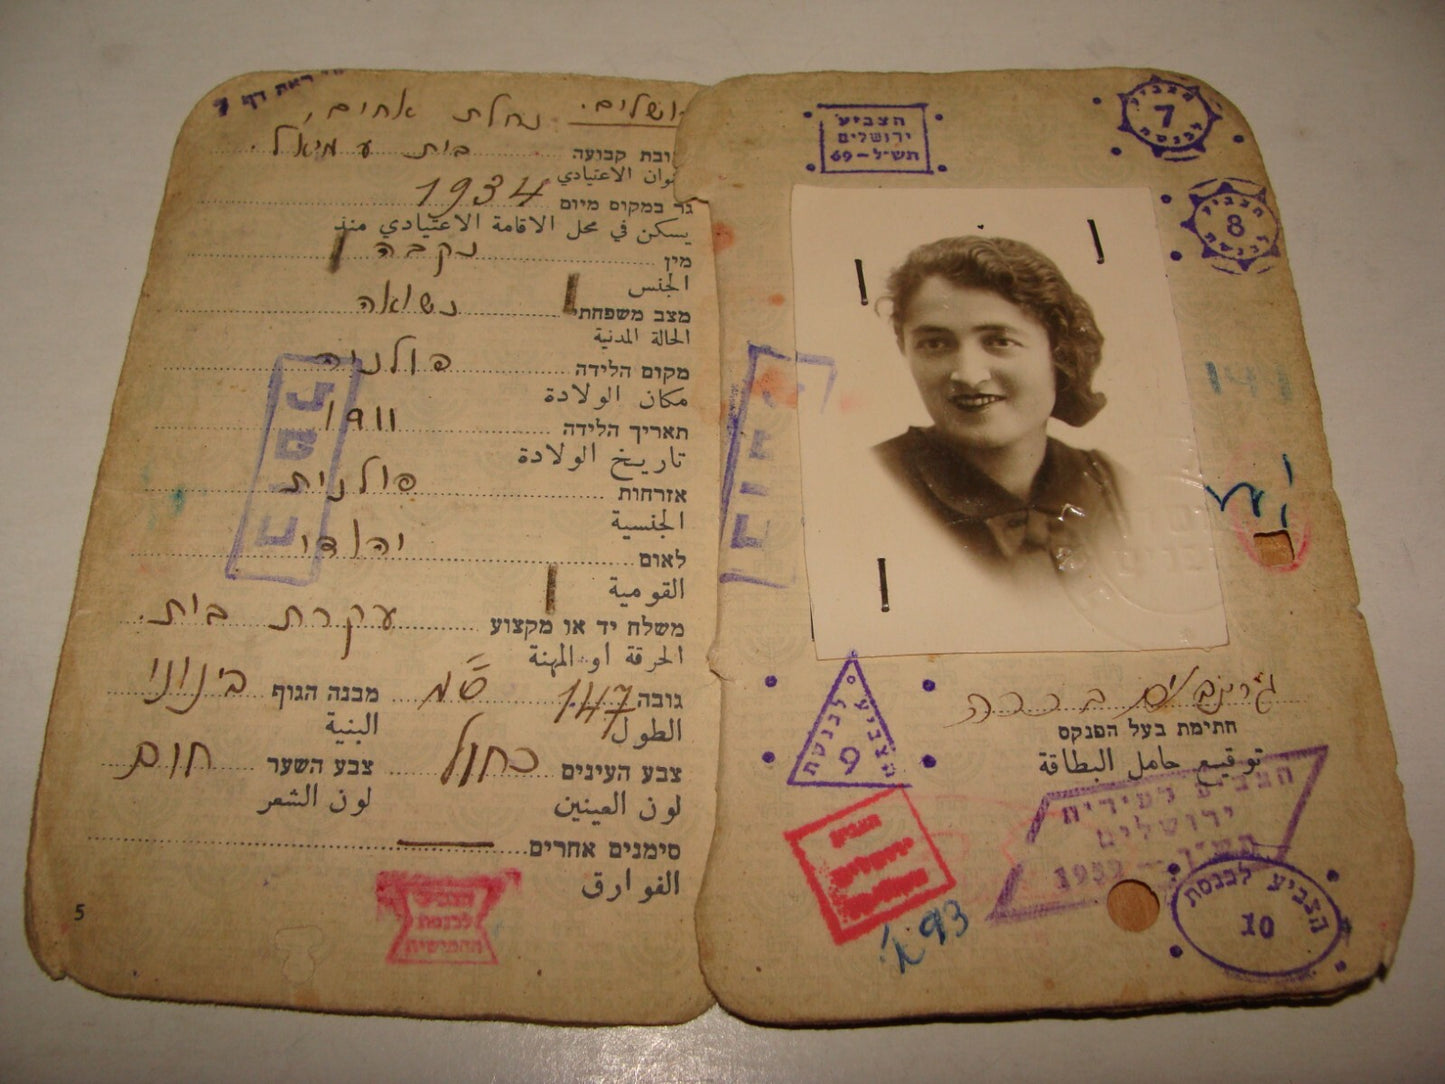 ראה דף 7
ירושלים. נחלת אחים,
כתובת קבועה בית עמיאל.
العنوان الاعتيادي
גר במקום מיום 1934
يسكن في محل الاقامة الاعتيادي منذ
מין נקבה
الجنس
מצב משפחתי נשואה
الحالة المدنية
מקום הלידה פולניה
مكان الولادة
תאריך הלידה 1911
تاريخ الولادة
אזרחות פולנית
الجنسية
לאום יהודי
القومية
משלח יד או מקצוע עקרת בית.
الحرفة او المهنة
גובה 147 ס"מ מבנה הגוף בינוני
الطول البنية
צבע העינים כחול צבע השער חום
لون العينين لون الشعر
סימנים אחרים
الفوارق
הצביע
לכנסת
החמישית
5
הצביע
ירושלים
תש"ל-69
הצביע
7
לכנסת
הצביע
8
לכנסת
141
חתימת בעל הפנקס
توقيع حامل البطاقة
הצביע לכנסת
9
הצביע לעירית
ירושלים
1959
הצביע
93
הצביע לכנסת
10